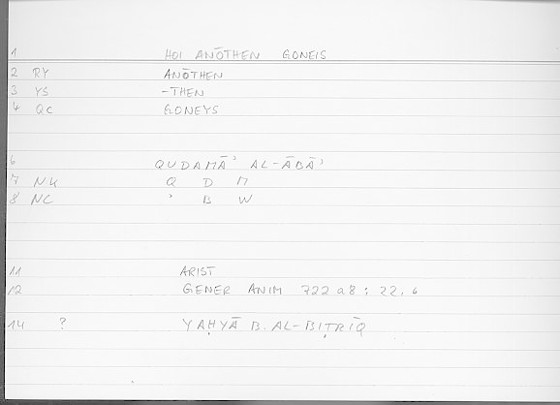 1 HOI ANŌTHEN GONEIS
2 RY ANŌTHEN
3 YS -THEN
4 QC GONEYS
6 QUDAMĀʾ AL-ĀBĀʾ
7 NK Q D M
8 NC ʾ B W
11 ARIST
12 GENER ANIM 722 a 8 ; 22.6
14 ? YAḤYĀ B. AL-BIṬRĪQ